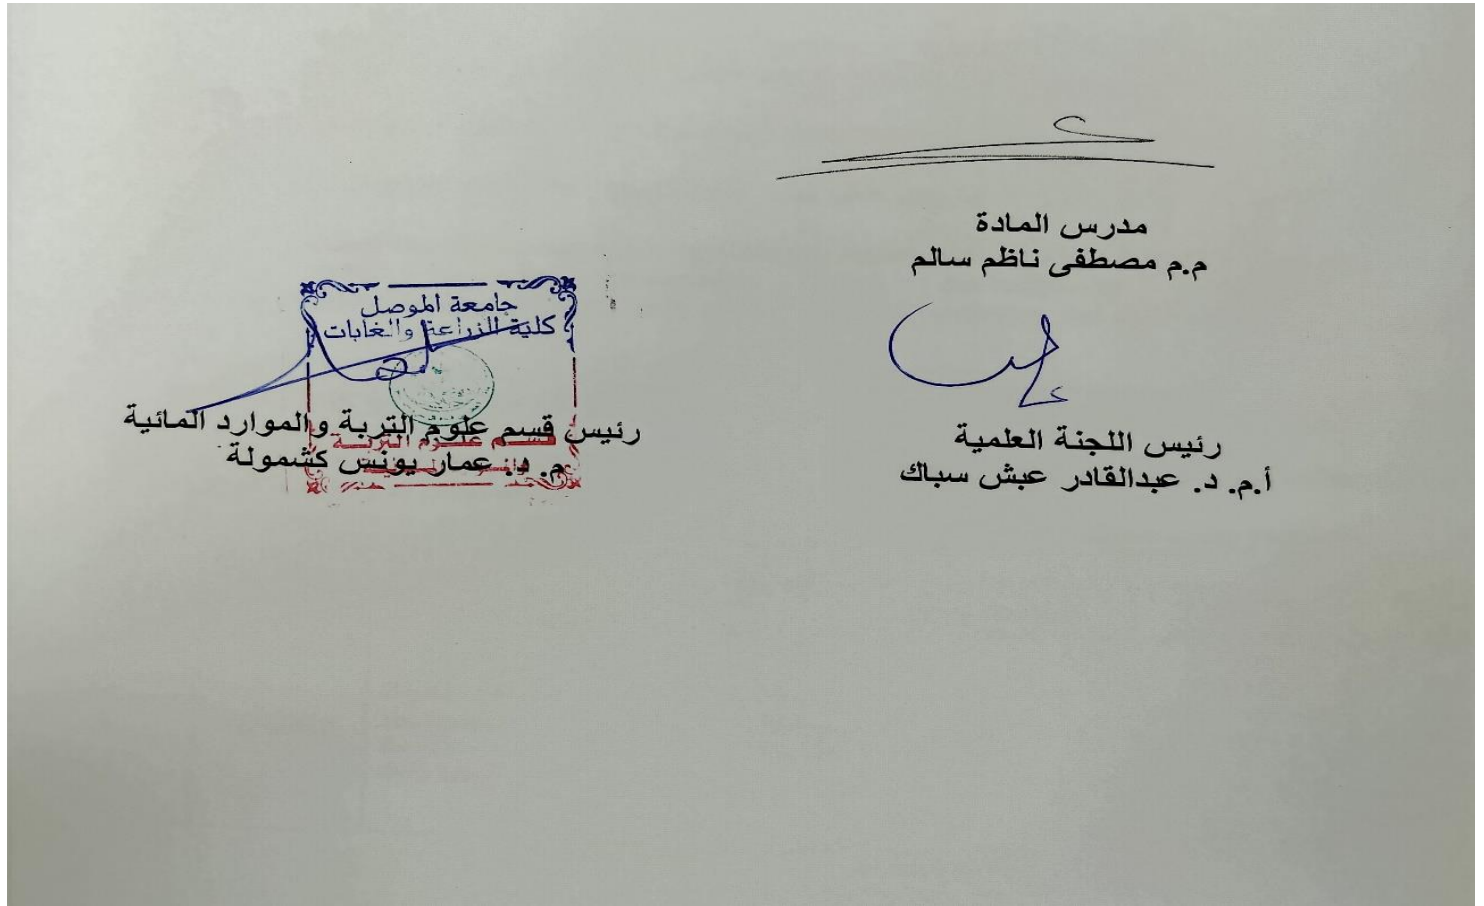 مدرس المادة
م.م مصطفى ناظم سالم
رئيس اللجنة العلمية
أ.م. د. عبدالقادر عبش سباك
جامعة الموصل
كلية الزراعة والغابات
رئيس قسم علوم التربة والموارد المائية
قسم علوم التربة
م. د. عمار يونس كشمولة